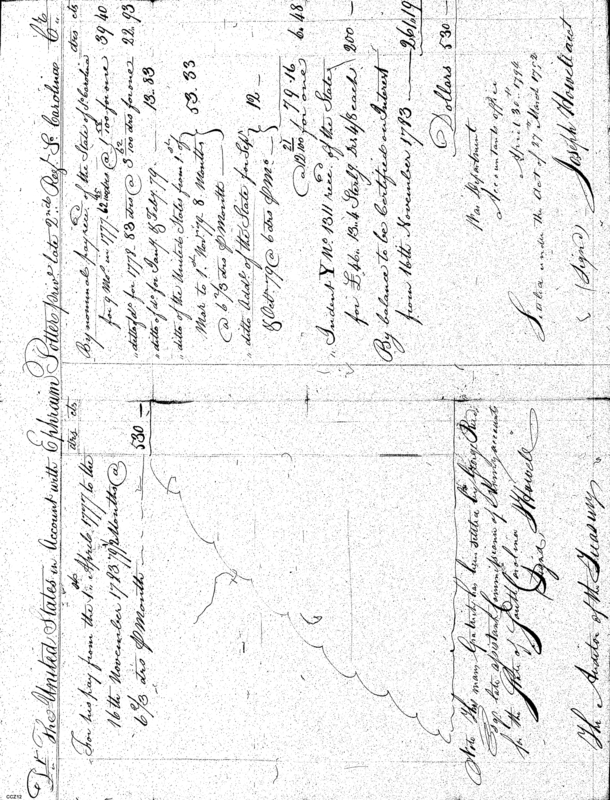 Dr. The United States in Account with Ephraim Potter priv. late 2nd Regt. S. Carolina Cr.
drs cts
For his pay from the 1st April 1777 to the
16th November 1783 79½ Months @
6 2/3 drs ⅌ Month 530 —
Note This mans Gratuity has been settled by George Reid
Esqr. late assistant Commissioner of Army accounts
for the State of South Carolina
Signd JHowell
The Auditor of the Treasury
drs cts
By nominal pay recd. of the State of So. Carolina
for 9 Mos. in 1777 @ 100 for one 39 40
ditto of do. for 1778. 83 drs @ 3 100 drs for one 22 93
ditto of do. for Jany. & Feby. 79. 13. 83
ditto of the United States from 1st of
Mar to 1st Novr 79. 8 Months
@ 6 2/3 drs ⅌ Month 53. 33
ditto Addl. of the State for Septr.
& Octr. 79 @ 6 drs ⅌ Mo. 12 —
179.16
@ for one 6. 48
Indent Y No. 1311 recd. of the State
for £46. 13. 4 Sterlg. 4/8 each 200 —
By balance to be Certified on Interest
from 16th November 1783
Dollars 530 —
War Department
Accountants office
April 30th 1794
Settled under the Act of 27th March 1792
(Signd) Joseph Howell acct
CCZ12